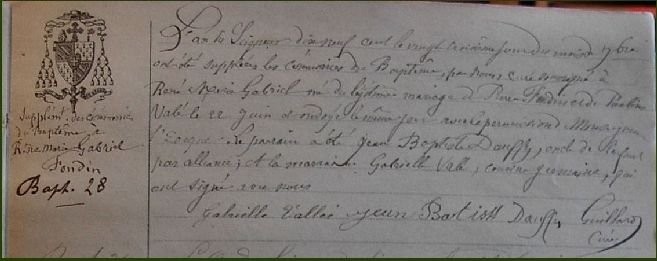 Supplém. des cérémonies
du Baptême de
René Marie Gabriel
Fondin
Bapt. 28
L'an du Seigneur dix neuf cent le vingt troisième jour du mois de 9bre
ont été suppléées les cérémonies du Baptême, par nous curé soussigné à
René Marie Gabriel né du légitime mariage de Pierre de
Valé le 22 juin et ondoyé le même jour avec la permission de Monseigneur
l'Evêque. Le parrain a été Jean Baptiste Dauffy, oncle de l'enfant
par alliance; et la marraine Gabrielle Valé, cousine germaine, qui
ont signé avec nous
Gabrielle Vallée Jean Batist Dauffy Guillard
Curé